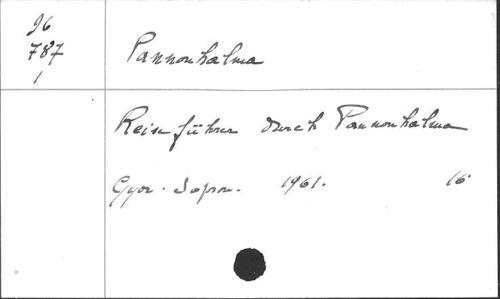 96
787
1
Pannonhalma
Reiseführer durch Pannonhalma
Gyor. Sopron. 1961. 16°